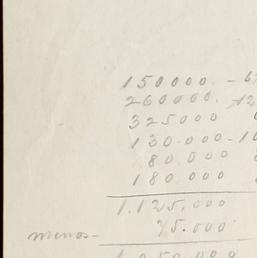 150000. - 6
260000. 12
325000
130.000 - 10
80.000
180.000
1.125.000
menos - 75.000
1.050.000